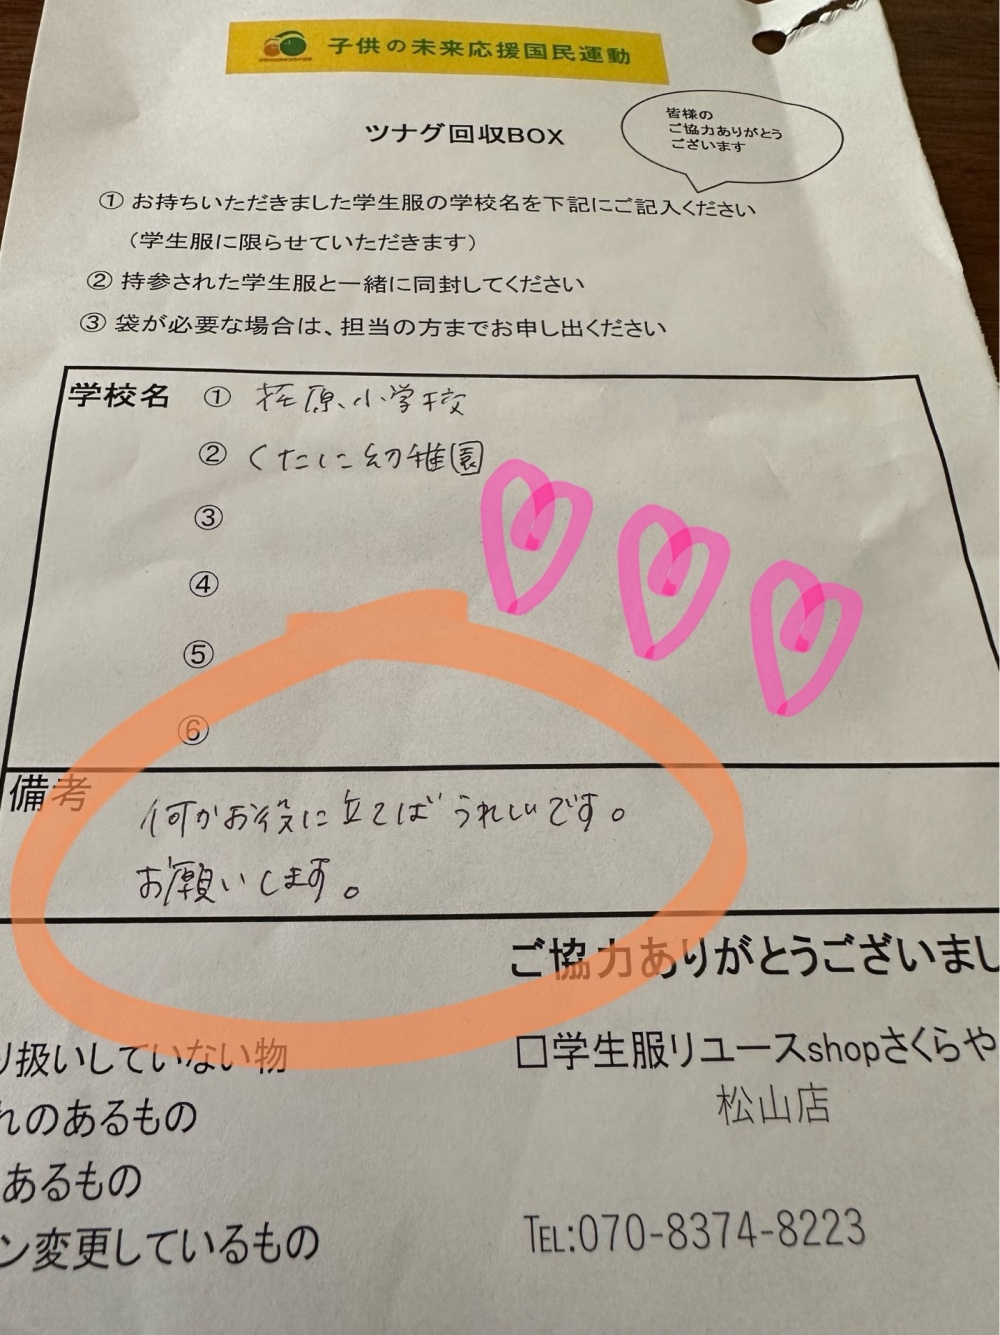 子供の未来応援国民運動
ツナグ回収BOX
皆様の
ご協力ありがとう
ございます
① お持ちいただきました学生服の学校名を下記にご記入ください
（学生服に限らせていただきます）
② 持参された学生服と一緒に同封してください
③ 袋が必要な場合は、担当の方までお申し出ください
学校名 ① 荏原小学校
② くたに幼稚園
③
④
⑤
⑥
備考 何かお役に立てばうれしいです。
お願いします。
ご協力ありがとうございまし
り扱いしていない物
れのあるもの
あるもの
ン変更しているもの
□学生服リユースshopさくらや
松山店
TEL:070-8374-8223